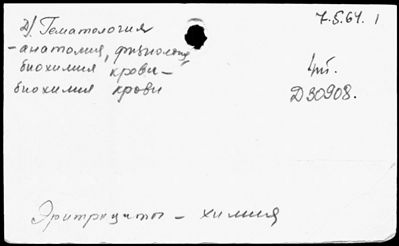 Д). Гематология
7.5.61. 1
-анатомия, физиология
биохимия крови -
биохимия крови
4т.
D30908.
Эритроциты - химия